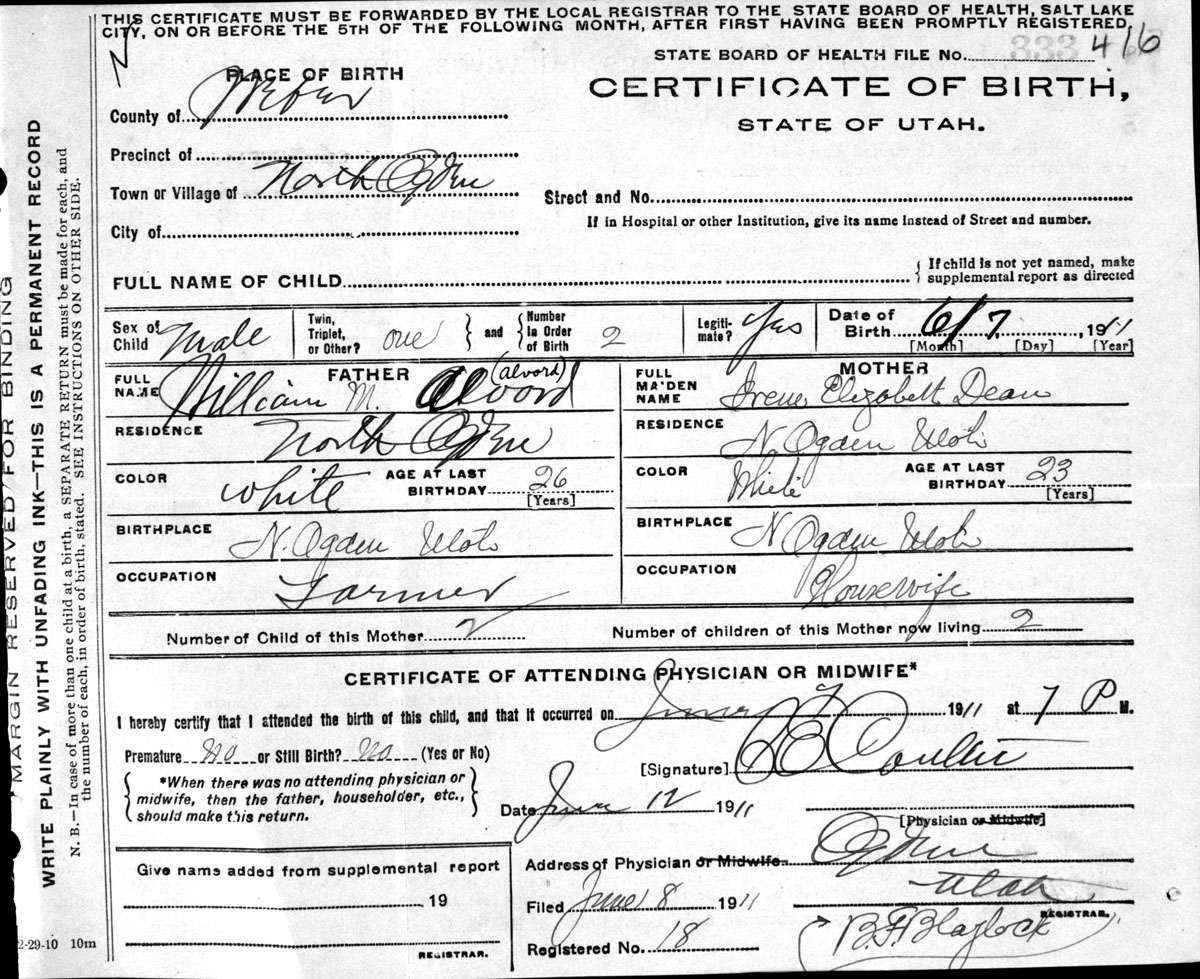 THIS CERTIFICATE MUST BE FORWARDED BY THE LOCAL REGISTRAR TO THE STATE BOARD OF HEALTH, SALT LAKE
CITY, ON OR BEFORE THE 5TH OF THE FOLLOWING MONTH, AFTER FIRST HAVING BEEN PROMPTLY REGISTERED.
STATE BOARD OF HEALTH FILE No. 416
PLACE OF BIRTH
CERTIFICATE OF BIRTH,
STATE OF UTAH.
County of Weber
Precinct of
Town or Village of North Ogden
Street and No.
If in Hospital or other Institution, give its name instead of Street and number.
City of
FULL NAME OF CHILD
If child is not yet named, make
supplemental report as directed
Sex of Child Male Twin, Triplet, or Other? one and Number In Order of Birth 2 Legiti-mate? Yes Date of Birth 6/7, 1911
[Month] [Day] [Year]
FATHER MOTHER
FULL NAME William M. Alvord (Alvord) FULL MAIDEN NAME Irene Elizabeth Dean
RESIDENCE North Ogden RESIDENCE N. Ogden Utah
COLOR White AGE AT LAST BIRTHDAY 26 [Years] COLOR White AGE AT LAST BIRTHDAY 23 [Years]
BIRTHPLACE N. Ogden Utah BIRTHPLACE N Ogden Utah
OCCUPATION Farmer OCCUPATION Housewife
Number of Child of this Mother 2 Number of children of this Mother now living 2
CERTIFICATE OF ATTENDING PHYSICIAN OR MIDWIFE*
I hereby certify that I attended the birth of this child, and that it occurred on June 7 1911 at 7 P M.
Premature No or Still Birth? No (Yes or No)
[Signature]
*When there was no attending physician or
midwife, then the father, householder, etc.,
should make this return.
Date June 12 1911
[Physician or Midwife]
Give name added from supplemental report
19
REGISTRAR.
Address of Physician or Midwife Ogden
Utah
Filed June 8 1911
REGISTRAR.
Registered No. 18 B.F. Blaylock
2-29-10 10m
MARGIN RESERVED FOR BINDING
WRITE PLAINLY WITH UNFADING INK—THIS IS A PERMANENT RECORD
N. B.—In case of more than one child at a birth, a SEPARATE RETURN must be made for each, and
the number of each, in order of birth, stated. SEE INSTRUCTIONS ON OTHER SIDE.